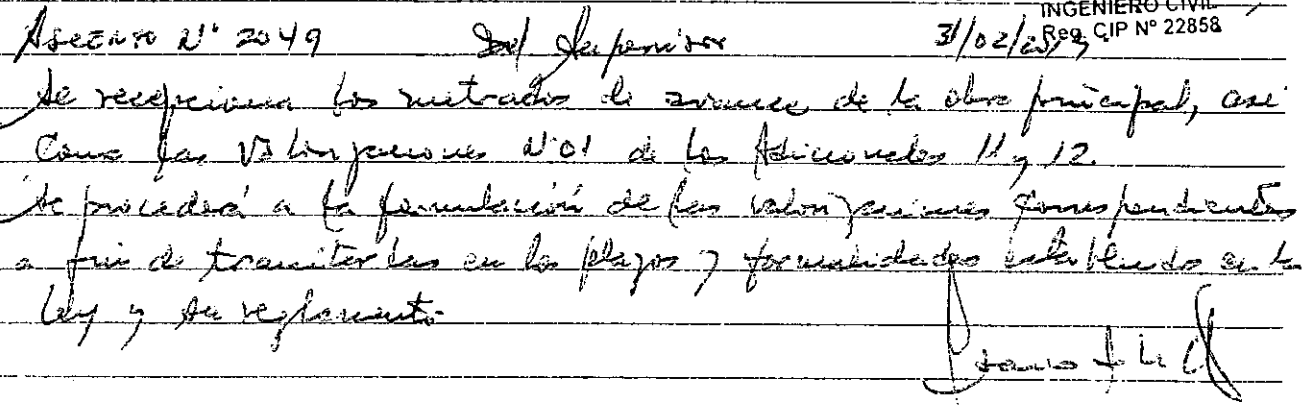 INGENIERO CIVIL
Reg. CIP Nº 22858
Asiento Nº 2049 Del Supervisor 31/02/
Se recepciona los metrados de avance de la obra principal, así
como las Valorizaciones Nº 01 de los Adicionales 11 y 12.
Se procederá a la formulación de las valorizaciones correspondientes
a fin de tramitarlas en los plazos y formalidades establecidos en la
Ley y su reglamento.